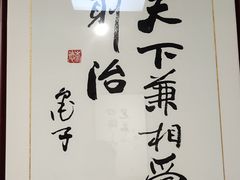 天下兼相爱
则治
墨子